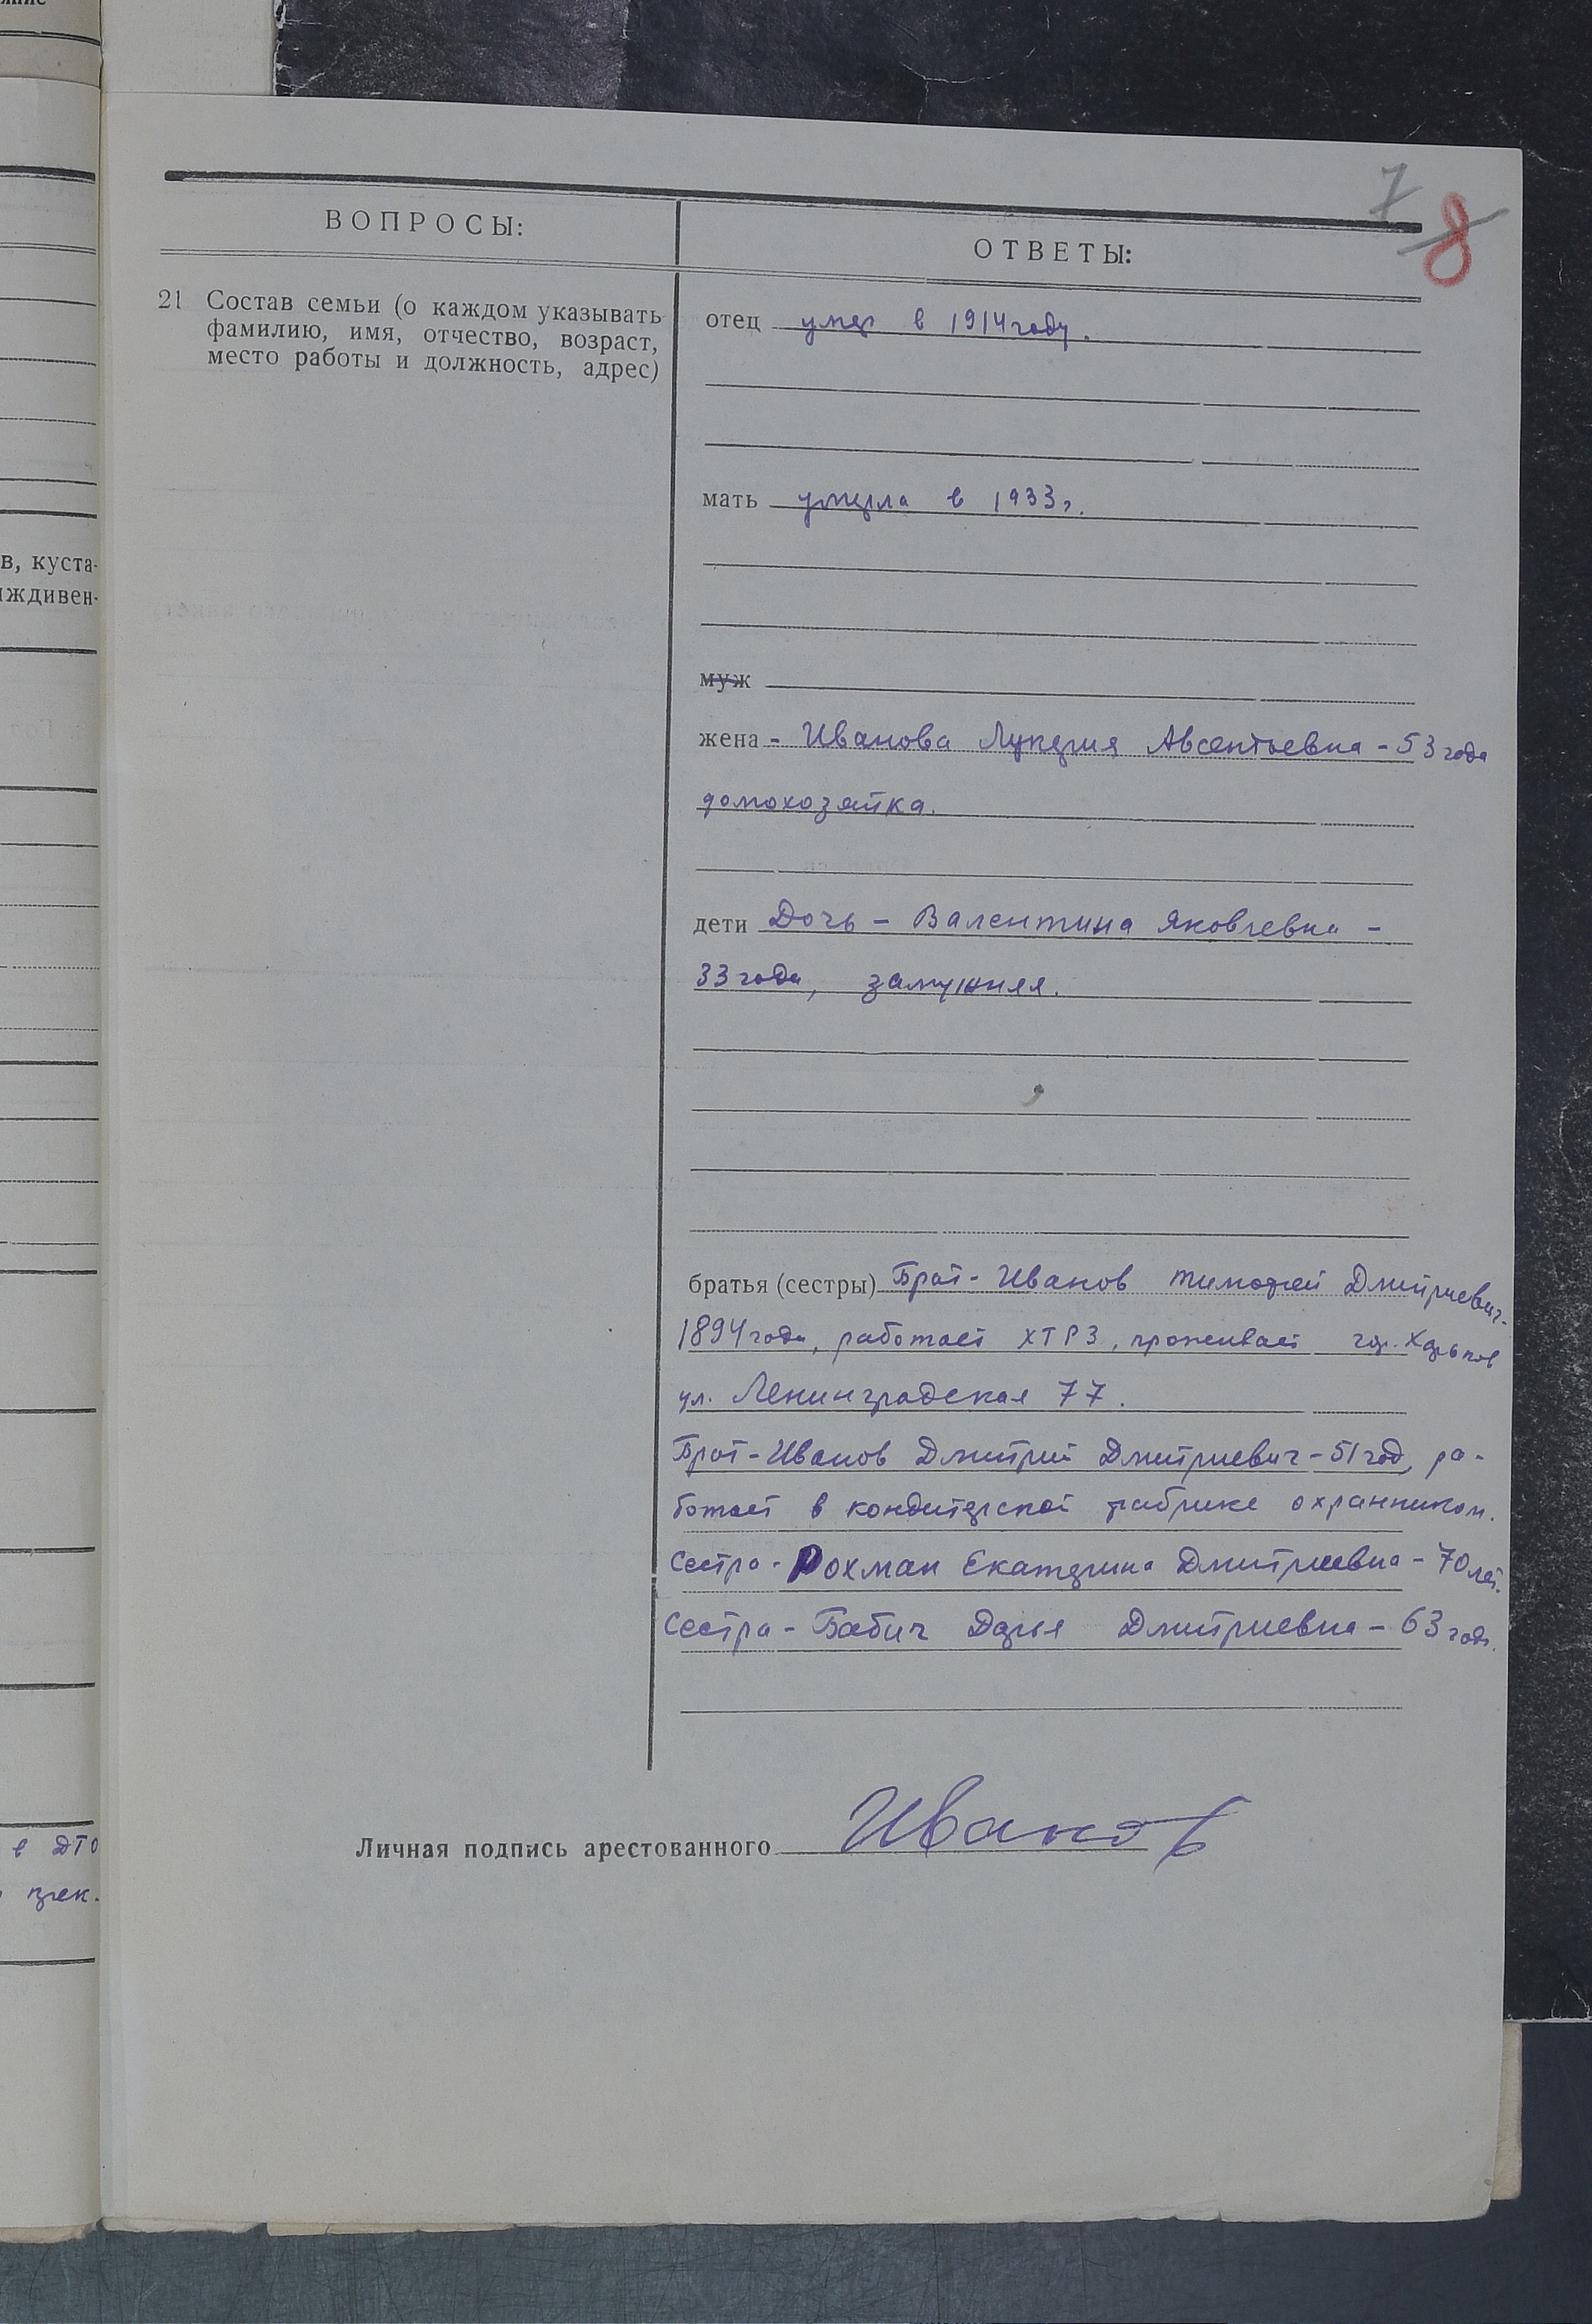 7
8
ВОПРОСЫ:
ОТВЕТЫ:
21 Состав семьи (о каждом указывать
фамилию, имя, отчество, возраст,
место работы и должность, адрес)
отец умер в 1914 году.
мать умерла в 1933 г.
муж
жена - Иванова Лукерия Авсентьевна - 53 года
домохозяйка.
дети Дочь - Валентина Яковлевна -
33 года, замужняя.
братья (сестры) Брат - Иванов Тимофей Дмитриевич-
1894 года, работает ХТРЗ, проживает гор. Харьков
ул. Ленинградская 77.
Брат - Иванов Дмитрий Дмитриевич - 51 год, ра-
ботает в кондитерской фабрике охранником.
Сестра - Рохман Екатерина Дмитриевна - 70 лет.
Сестра - Бабич Дарья Дмитриевна - 63 года.
Личная подпись арестованного Иванов
в, куста-
иждивен-
в ДТО